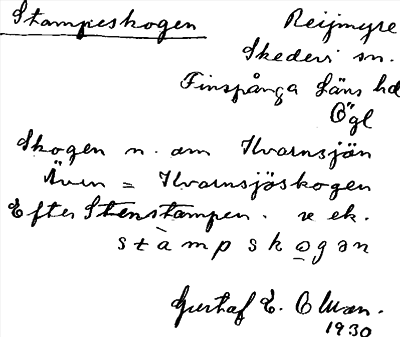 Stampeskogen Reijmyre
Skedevi sn.
Finspånga Läns hd
Ögl
Skogen n. om Kvarnsjön
Även = Kvarnsjöskogen
Efter Stenstampen. v ek.
stàmpskogən
Gustaf E. Olman.
1930